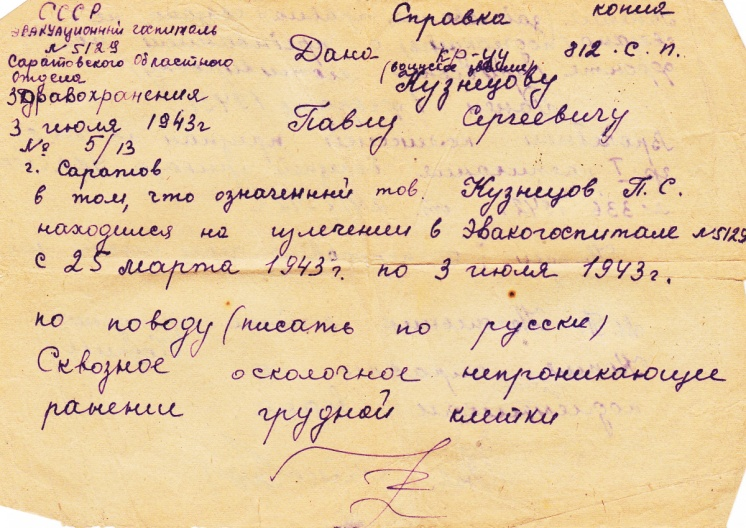 СССР
эвакуационный госпиталь
№ 5129
Саратовского Областного
отдела
Здравохранения
3 июля 1943г
№ 5/13
г. Саратов
Справка копия
Дана кр-цу 812. с. п.
(воинское звание)
Кузнецову
Павлу Сергеевичу
в том, что означенный тов. Кузнецов П. С.
находился на излечении в Эвакогоспитале №5129
с 25 марта 1943г. по 3 июля 1943г.
по поводу (писать по русски)
Сквозное осколочное непроникающее
ранение грудной клетки